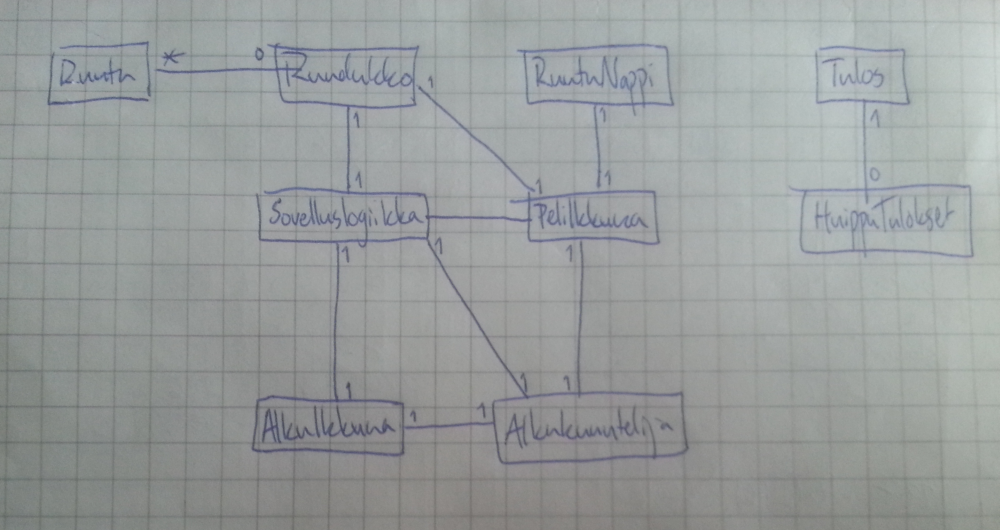 Ruutu * 0 Ruudukko RuutuNappi Tulos
1 1 1
1 1 1 0
Sovelluslogiikka PeliIkkuna HuippuTulokset
1 1 1
1 1 1
AlkuIkkuna 1 1 Alkukuuntelija